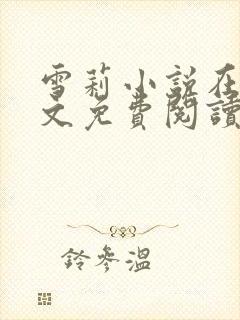 雪莉小說在
文免費閱讀
鈴參溫